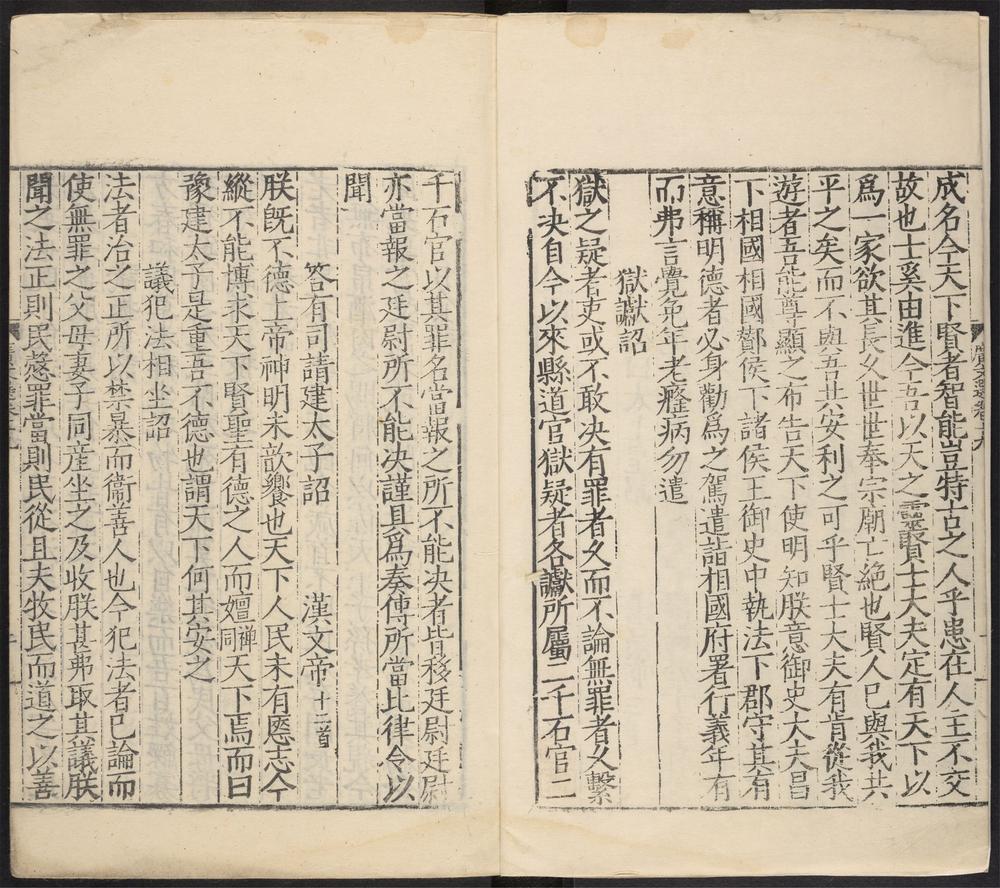 成名今天下賢者智能豈特古之人乎患在人主不交
故也士奚由進今吾以天之靈賢士大夫定有天下以
爲一家欲其長久世世奉宗廟亡絶也賢人已與我共
平之矣而不與吾共安利之可乎賢士大夫有肯從我
遊者吾能尊顯之布告天下使明知朕意御史大夫昌
下相國相國酇侯下諸侯王御史中執法下郡守其有
意稱明德者必身勸爲之駕遣詣相國府署行義年有
而弗言覺免年老癃病勿遣
獄讞詔
獄之疑者吏或不敢决有罪者久而不論無罪者久繫
不决自今以來縣道官獄疑者各讞所屬二千石官二
千石官以其罪名當報之所不能决者皆移廷尉廷尉
亦當報之廷尉所不能决謹具爲奏傳所當比律令以
聞
答有司請建太子詔 漢文帝十二首
朕旣不德上帝神明未歆饗也天下人民未有愿志今
縱不能博求天下賢聖有德之人而嬗禅同天下焉而曰
豫建太子是重吾不德也謂天下何其安之
議犯法相坐詔
法者治之正所以禁暴而衞善人也今犯法者已論而
使無罪之父母妻子同産坐之及收朕甚弗取其議朕
聞之法正則民慤罪當則民從且夫牧民而道之以善